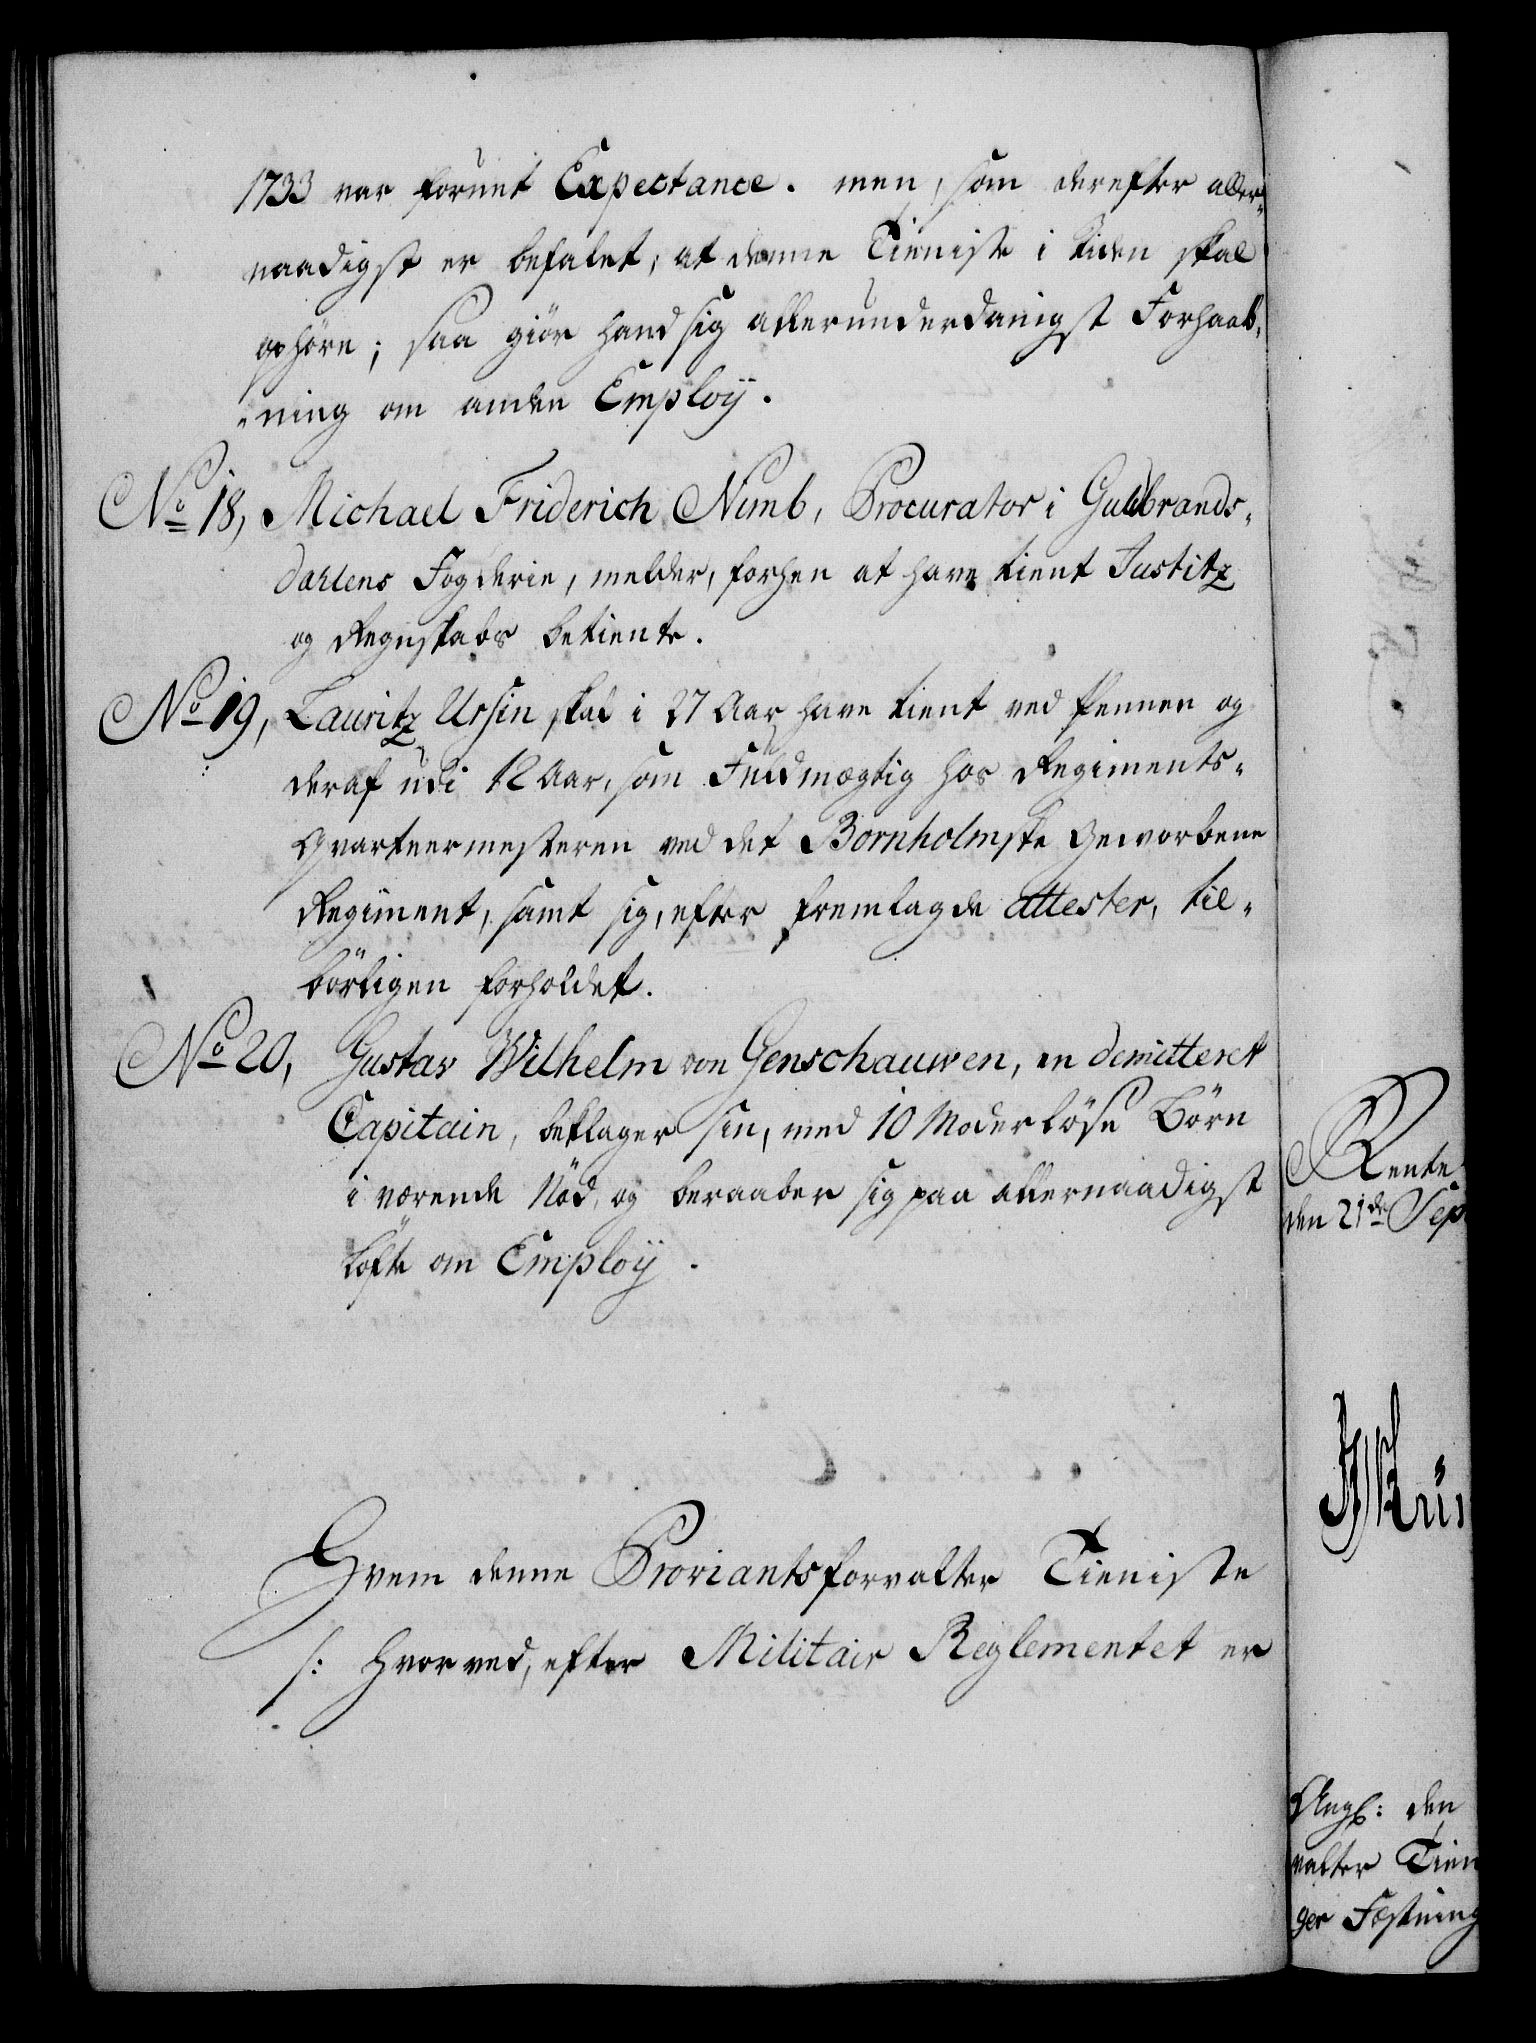 1733 var forunt Expectance. men, som derefter aller-
naadigst er befalet, at denne Tieniste i tiden skal
ophöre; saa giör hand sig allerunderdanigst Forhaab-
-ning om anden Employ.
No 18, Michael Friderich Nimb, Procurator i Guldbrands-
dahlens Fogderie, melder, forhen at have tient Justitz
og Regnskabs betiente.
No 19, Lauritz Ursin skal i 27 Aar have tient ved Pennen og
deraf udi 12 Aar, som Fuldmægtig hos Regiments-
Qvarteermesteren ved det Bornholmske Geworbene
Regiment, samt sig, efter fremlagde attester, til-
börligen forholdet.
No 20, Gustav Wilhelm von Genschauwen, en demitteret
Capitain, beklager sin, med 10 Moderlöse Börn
i værende Nöd, og beraaber sig paa allernaadigst
löfte om Employ.
Hvem denne Proviantsforvalter Tieniste
/: hvorved, efter Militair Reglementet er
Rente
den 21de Sep
Angl: den
valter Tien
ger Fæstning